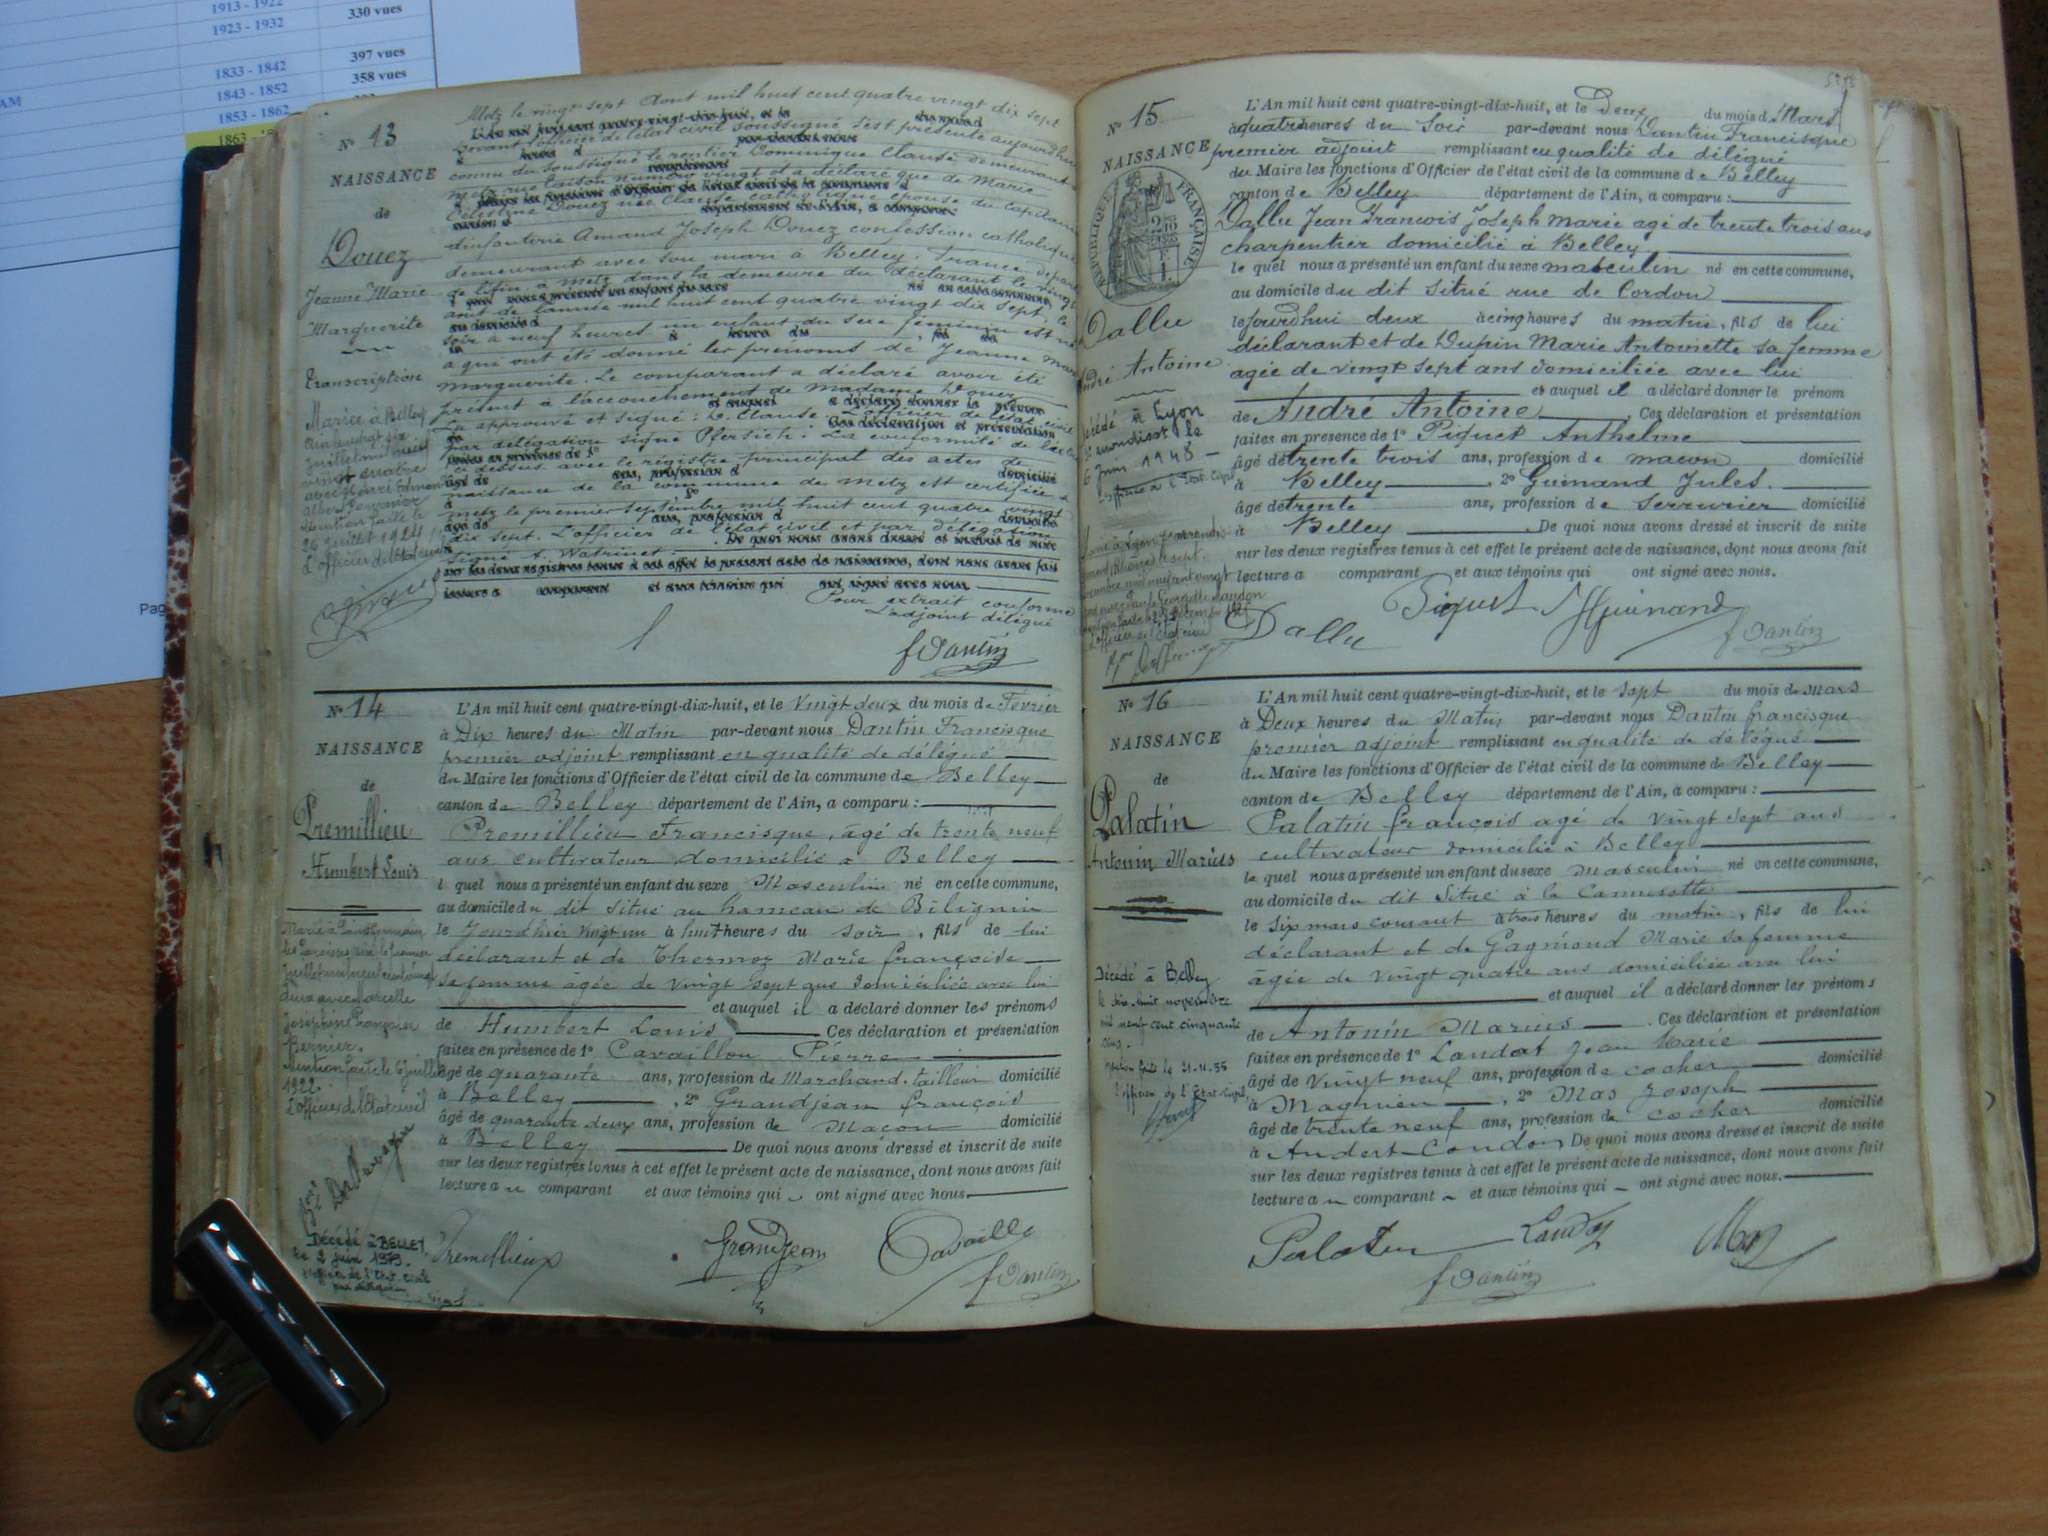 1913 - 1922
1923 - 1932
330 vues
1833 - 1842
397 vues
AM
1843 - 1852
358 vues
1853 - 1862
1863
Pag
N° 13
NAISSANCE
de
Douez
Jeanne Marie
Marguerite
Transcription
Mariée à Belley
juillet mil neuf
vingt quatre
avec
Mention faite le
26 juillet 1924
L'officier de l'état civil
Metz le vingt-sept Aout mil huit cent quatre vingt dix sept
Devant l'officier de l'état civil soussigné s'est présenté aujourd'hui
connu du soussigné le rentier Dominique Claude demeurant à
Metz rue numéro vingt et a déclaré que de Marie
Célestine Douez née Claude catholique épouse du Capitaine
d'infanterie Amand Joseph Douez confession catholique
demeurant avec son mari à Belley, France, départ
de l'Ain à Metz dans la demeure du déclarant le vingt
aout de l'année mil huit cent quatre vingt dix sept, le
soir à neuf heures un enfant du sexe féminin est né
a qui ont été donné les prénoms de Jeanne Marie
Marguerite. Le comparant a déclaré avoir été
présent à l'accouchement de Madame Douez
Lu approuvé et signé: D. Claude. L'officier de l'état civil
par délégation signé Pfersich. La conformité de l'extrait
ci dessus avec le régistre principal des actes de
naissance de la commune de Metz est certifiée
Metz le premier septembre mil huit cent quatre vingt
dix sept. L'officier de l'état civil et par délégation
signé A. Watrinet.
Pour extrait conforme
L'adjoint délégué
f Dantin
N° 14
NAISSANCE
de
Premillieu
Humbert Louis
Marié à Saint Germain
avec Marcelle
Joséphine Françoise
Bernier.
Mention faite le 6 juillet
1922.
L'officier de l'état civil
Décédé à BELLEY
le 2 juin 1973.
l'officier de l'Etat-Civil
par délégation
L'An mil huit cent quatre-vingt-dix-huit, et le Vingt deux du mois de Février
à Dix heures du Matin par-devant nous Dantin Francisque
premier adjoint remplissant en qualité de délégué
du Maire les fonctions d'Officier de l'état civil de la commune de Belley
canton de Belley département de l'Ain, a comparu :
Premillieu Francisque, âgé de trente neuf
ans cultivateur domicilié à Belley
l quel nous a présenté un enfant du sexe Masculin né en cette commune,
au domicile du dit situé au hameau de Bilignin
le Jourdhier vingt un à huit heures du soir, fils de lui
déclarant et de Thermoz Marie françoise
sa femme âgée de vingt sept ans domiciliée avec lui
et auquel il a déclaré donner les prénoms
de Humbert Louis Ces déclaration et présentation
faites en présence de 1° Cavaillou Pierre
âgé de quarante ans, profession de Marchand-tailleur domicilié
à Belley , 2° Grandjean françois
âgé de quarante deux ans, profession de Macon domicilié
à Belley De quoi nous avons dressé et inscrit de suite
sur les deux registres tenus à cet effet le présent acte de naissance, dont nous avons fait
lecture au comparant et aux témoins qui ont signé avec nous.
Premillieux
Grandjean
Cavaille
f Dantin
N° 15
NAISSANCE
RÉPUBLIQUE FRANÇAISE
Dallu
André Antoine
Décédé à Lyon
6 Juin 1948
L'officier de l'Etat Civil
L'An mil huit cent quatre-vingt-dix-huit, et le Deux du mois de Mars
à quatre heures du soir par-devant nous Dantin Francisque
premier adjoint remplissant en qualité de délégué
du Maire les fonctions d'Officier de l'état civil de la commune de Belley
canton de Belley département de l'Ain, a comparu :
Dallu Jean Francois Joseph Marie agé de trente trois ans
charpentier domicilié à Belley
le quel nous a présenté un enfant du sexe masculin né en cette commune,
au domicile du dit situé rue de Cordon
le jourdhui deux à cinq heures du matin, fils de lui
déclarant et de Dupin Marie Antoinette sa femme
agée de vingt sept ans domiciliée avec lui
et auquel il a déclaré donner le prénom
de André Antoine . Ces déclaration et présentation
faites en présence de 1° Piquet Anthelme
âgé de trente trois ans, profession de macon domicilié
à Belley , 2° Guinand Jules.
âgé de trente ans, profession de serrurier domicilié
à Belley . De quoi nous avons dressé et inscrit de suite
sur les deux registres tenus à cet effet le présent acte de naissance, dont nous avons fait
lecture a comparant et aux témoins qui ont signé avec nous.
Piquet
JGuinand
Dallu
f Dantin
N° 16
NAISSANCE
de
Palatin
Antonin Marius
Décédé à Belley
le dix huit novembre
mil neuf cent cinquante
cinq.
mention faite le 21-11-55
l'officier de l'Etat-Civil,
L'An mil huit cent quatre-vingt-dix-huit, et le sept du mois de Mars
à Deux heures du Matin par-devant nous Dantin francisque
premier adjoint remplissant en qualité de délégué
du Maire les fonctions d'Officier de l'état civil de la commune de Belley
canton de Belley département de l'Ain, a comparu :
Palatin françois agé de vingt sept ans
cultivateur domicilié à Belley
le quel nous a présenté un enfant du sexe masculin né en cette commune,
au domicile du dit Situé à la
le Six mars courant à trois heures du matin, fils de lui
déclarant et de Gagnioud Marie sa femme
âgée de vingt quatre ans domiciliée avec lui
et auquel il a déclaré donner les prénoms
de Antonin Marius . Ces déclaration et présentation
faites en présence de 1° Laudat Jean Marie
âgé de Vingt neuf ans, profession de cocher domicilié
à Magnieu , 2° Mas Joseph
âgé de trente neuf ans, profession de cocher domicilié
à Andert-Condon De quoi nous avons dressé et inscrit de suite
sur les deux registres tenus à cet effet le présent acte de naissance, dont nous avons fait
lecture au comparant et aux témoins qui ont signé avec nous.
Palatin
Mas
f Dantin